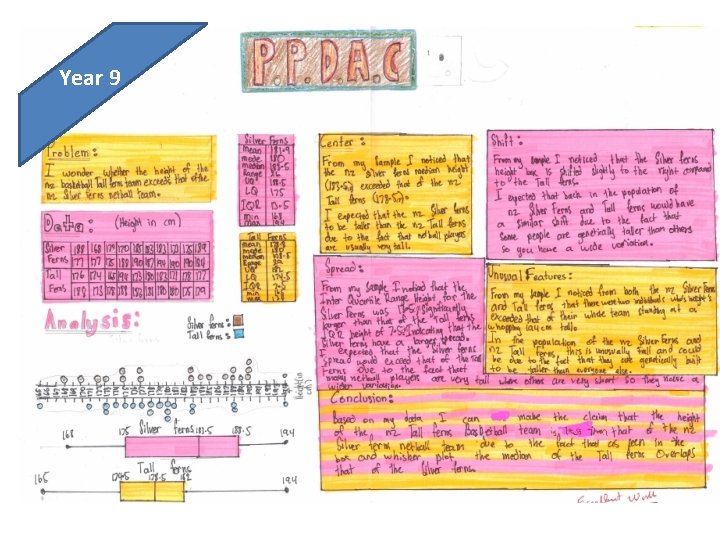 Year 9
P.P.D.A.C
Problem:
I wonder whether the height of the
nz basketball Tall fern team exceeds that of the
nz Silver ferns netball team.
Data: (Height in cm)
Silver
Ferns
Tall
Ferns
Analysis:
Silver ferns:
Tall ferns:
Silver Ferns
mean 181.9
mode 180
median 183.5
Range 26
UQ 188.5
LQ 175
IQR 13.5
min 168
max 194
Tall Ferns
mean
mode
median 178.5
Range
UQ 182
LQ 174.5
IQR 7.5
min
max
Center:
From my sample I noticed that
the nz Silver ferns median height
(183.5) exceeded that of the nz
Tall ferns (178.5).
I expected that the nz Silver ferns
to be taller than the nz Tall ferns
due to the fact that netball players
are usually very tall.
Shift:
From my sample I noticed that the Silver ferns
height box is shifted slightly to the right compared
to the Tall ferns.
I expected that back in the population of
nz Silver ferns and Tall ferns would have
a similar shift due to the fact that
some people are genetically taller than others
so you have a wide variation.
Spread:
From my sample I noticed that the
Inter Quartile Range height for the
Silver ferns was 13.5, significantly
larger than that of the Tall ferns
IQR height of 7.5 indicating that the
Silver ferns have a larger spread.
I expected that the Silver ferns
spread would exceed that of the Tall
Ferns due to the fact that
many netball players are very tall where others are very short so they have a
wider variation.
Unusual Features:
From my sample I noticed from both the nz Silver Ferns
and Tall ferns that there were two individuals who's height's
exceeded that of their whole team standing at a
whopping 194cm tall.
In the population of the nz Silver Ferns and
nz Tall ferns, this is unusually tall and could
be due to the fact that they are genetically built
to be taller than everyone else.
Conclusion:
Based on my data I can make the claim that the height
of the nz Tall ferns Basketball team is less than that of the nz
Silver ferns netball team due to the fact that as seen in the
box and whisker plot the median of the Tall ferns overlaps
that of the Silver ferns.
Height (in cm)
168 175 Silver ferns 183.5 188.5 194
Tall ferns
165 174.5 178.5 182 194
Excellent Work